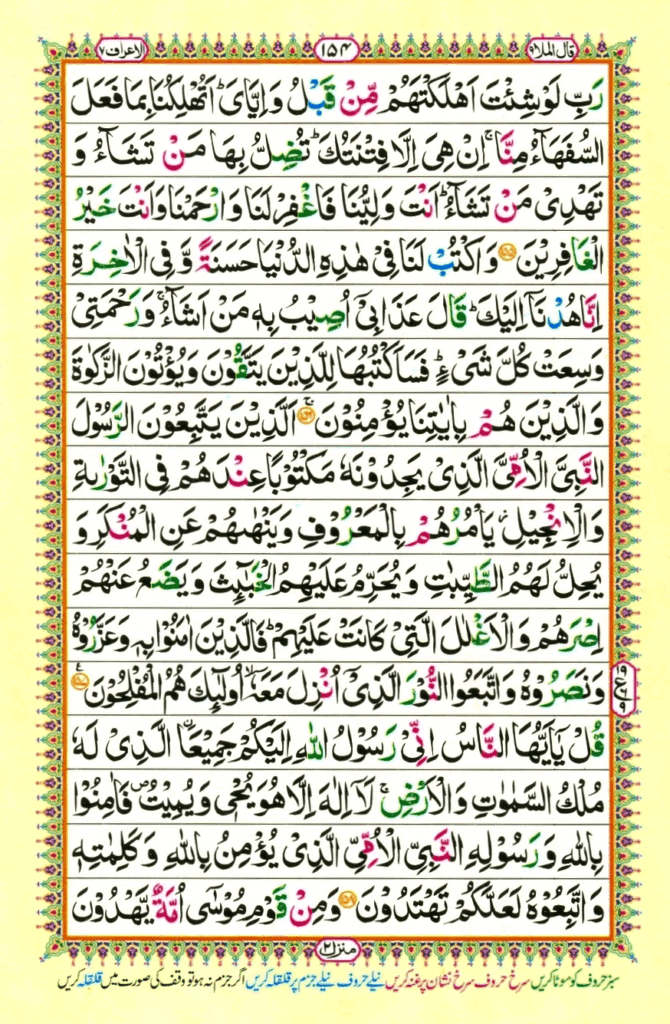 قال الملا٩ ١٥٤ الاعراف٧
رَبِّ لَوْ شِئْتَ اَهْلَكْتَهُمْ مِّنْ قَبْلُ وَ اِيَّايَ ؕ اَتُهْلِكُنَا بِمَا فَعَلَ
السُّفَهَآءُ مِنَّا ۚ اِنْ هِيَ اِلَّا فِتْنَتُكَ ؕ تُضِلُّ بِهَا مَنْ تَشَآءُ وَ
تَهْدِيْ مَنْ تَشَآءُ ؕ اَنْتَ وَلِيُّنَا فَاغْفِرْ لَنَا وَ ارْحَمْنَا وَ اَنْتَ خَيْرُ
الْغَافِرِيْنَ ۝۱۵۵ وَ اكْتُبْ لَنَا فِيْ هٰذِهِ الدُّنْيَا حَسَنَةً وَّ فِي الْاٰخِرَةِ
اِنَّا هُدْنَاۤ اِلَيْكَ ؕ قَالَ عَذَابِيْۤ اُصِيْبُ بِهٖ مَنْ اَشَآءُ ۚ وَ رَحْمَتِيْ
وَسِعَتْ كُلَّ شَيْءٍ ؕ فَسَاَكْتُبُهَا لِلَّذِيْنَ يَتَّقُوْنَ وَ يُؤْتُوْنَ الزَّكٰوةَ
وَ الَّذِيْنَ هُمْ بِاٰيٰتِنَا يُؤْمِنُوْنَ ۝۱۵۶ اَلَّذِيْنَ يَتَّبِعُوْنَ الرَّسُوْلَ
النَّبِيَّ الْاُمِّيَّ الَّذِيْ يَجِدُوْنَهٗ مَكْتُوْبًا عِنْدَهُمْ فِي التَّوْرٰىةِ
وَ الْاِنْجِيْلِ ؗ يَاْمُرُهُمْ بِالْمَعْرُوْفِ وَ يَنْهٰىهُمْ عَنِ الْمُنْكَرِ وَ
يُحِلُّ لَهُمُ الطَّيِّبٰتِ وَ يُحَرِّمُ عَلَيْهِمُ الْخَبٰٓىِٕثَ وَ يَضَعُ عَنْهُمْ
اِصْرَهُمْ وَ الْاَغْلٰلَ الَّتِيْ كَانَتْ عَلَيْهِمْ ؕ فَالَّذِيْنَ اٰمَنُوْا بِهٖ وَ عَزَّرُوْهُ
وَ نَصَرُوْهُ وَ اتَّبَعُوا النُّوْرَ الَّذِيْۤ اُنْزِلَ مَعَهٗۤ ۙ اُولٰٓىِٕكَ هُمُ الْمُفْلِحُوْنَ ۝۱۵۷
قُلْ يٰۤاَيُّهَا النَّاسُ اِنِّيْ رَسُوْلُ اللّٰهِ اِلَيْكُمْ جَمِيْعَا ِ۟الَّذِيْ لَهٗ
مُلْكُ السَّمٰوٰتِ وَ الْاَرْضِ ۚ لَاۤ اِلٰهَ اِلَّا هُوَ يُحْيٖ وَ يُمِيْتُ ۪ فَاٰمِنُوْا
بِاللّٰهِ وَ رَسُوْلِهِ النَّبِيِّ الْاُمِّيِّ الَّذِيْ يُؤْمِنُ بِاللّٰهِ وَ كَلِمٰتِهٖ
وَ اتَّبِعُوْهُ لَعَلَّكُمْ تَهْتَدُوْنَ ۝۱۵۸ وَ مِنْ قَوْمِ مُوْسٰۤى اُمَّةٌ يَّهْدُوْنَ
منزل٢
سبز حروف کو موٹا کریں سرخ حروف سرخ نشان پر غنہ کریں نیلے حروف نیلے جزم پر قلقلہ کریں اگر جزم نہ ہو تو وقف کی صورت میں قلقلہ کریں